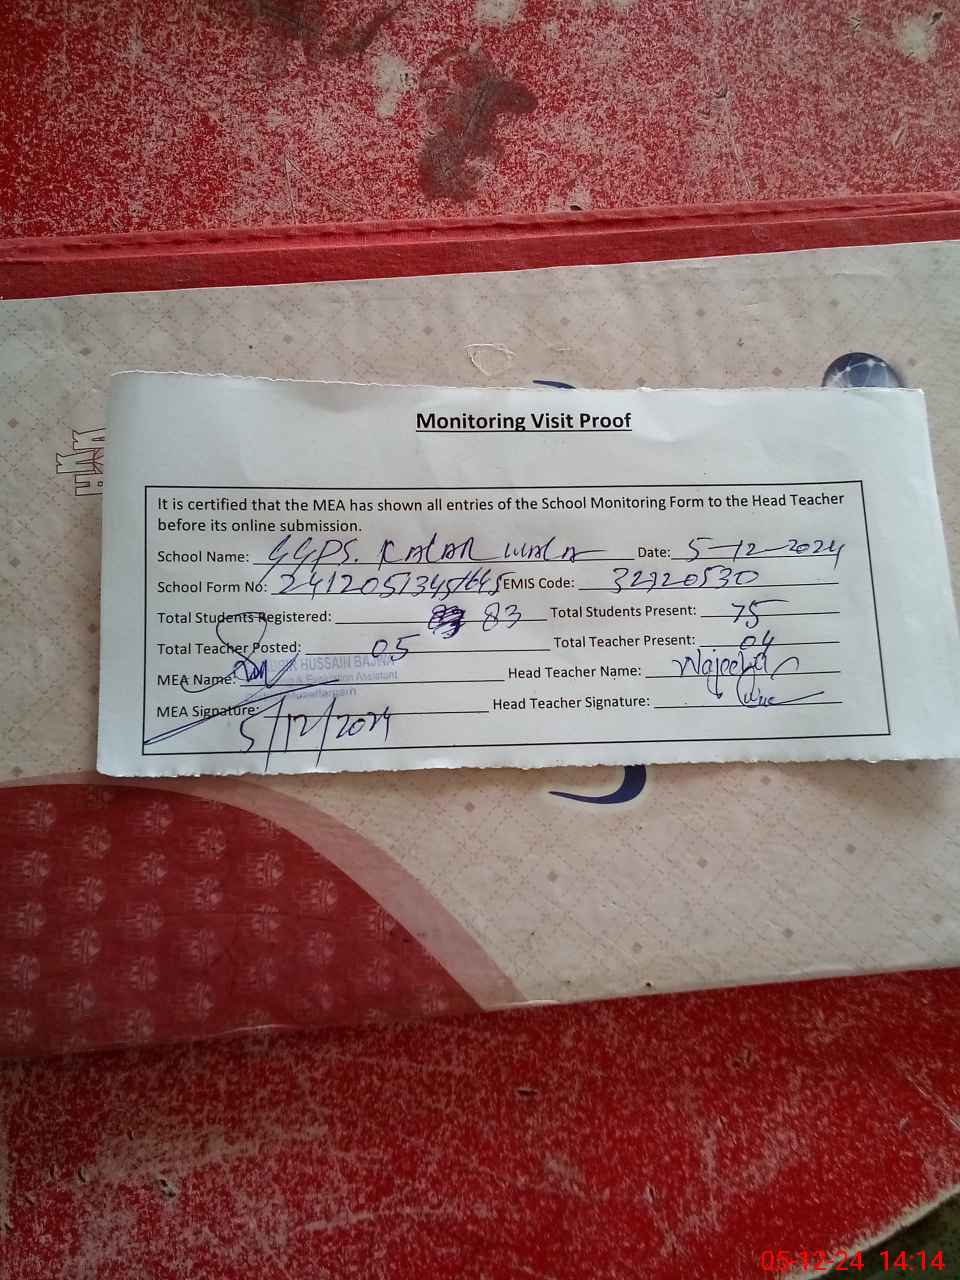 Monitoring Visit Proof
It is certified that the MEA has shown all entries of the School Monitoring Form to the Head Teacher
before its online submission.
School Name: GGPS. KALAR WALA Date: 5-12-2024
School Form No: EMIS Code: 32320530
Total Students Registered: 83 Total Students Present: 75
Total Teacher Posted: 05 Total Teacher Present: 04
HUSSAIN BAJWA
MEA Name: Head Teacher Name: Wajeeha
& Evaluation Assistant
MEA Signature: Head Teacher Signature:
5/12/2024
05-12-24 14:14